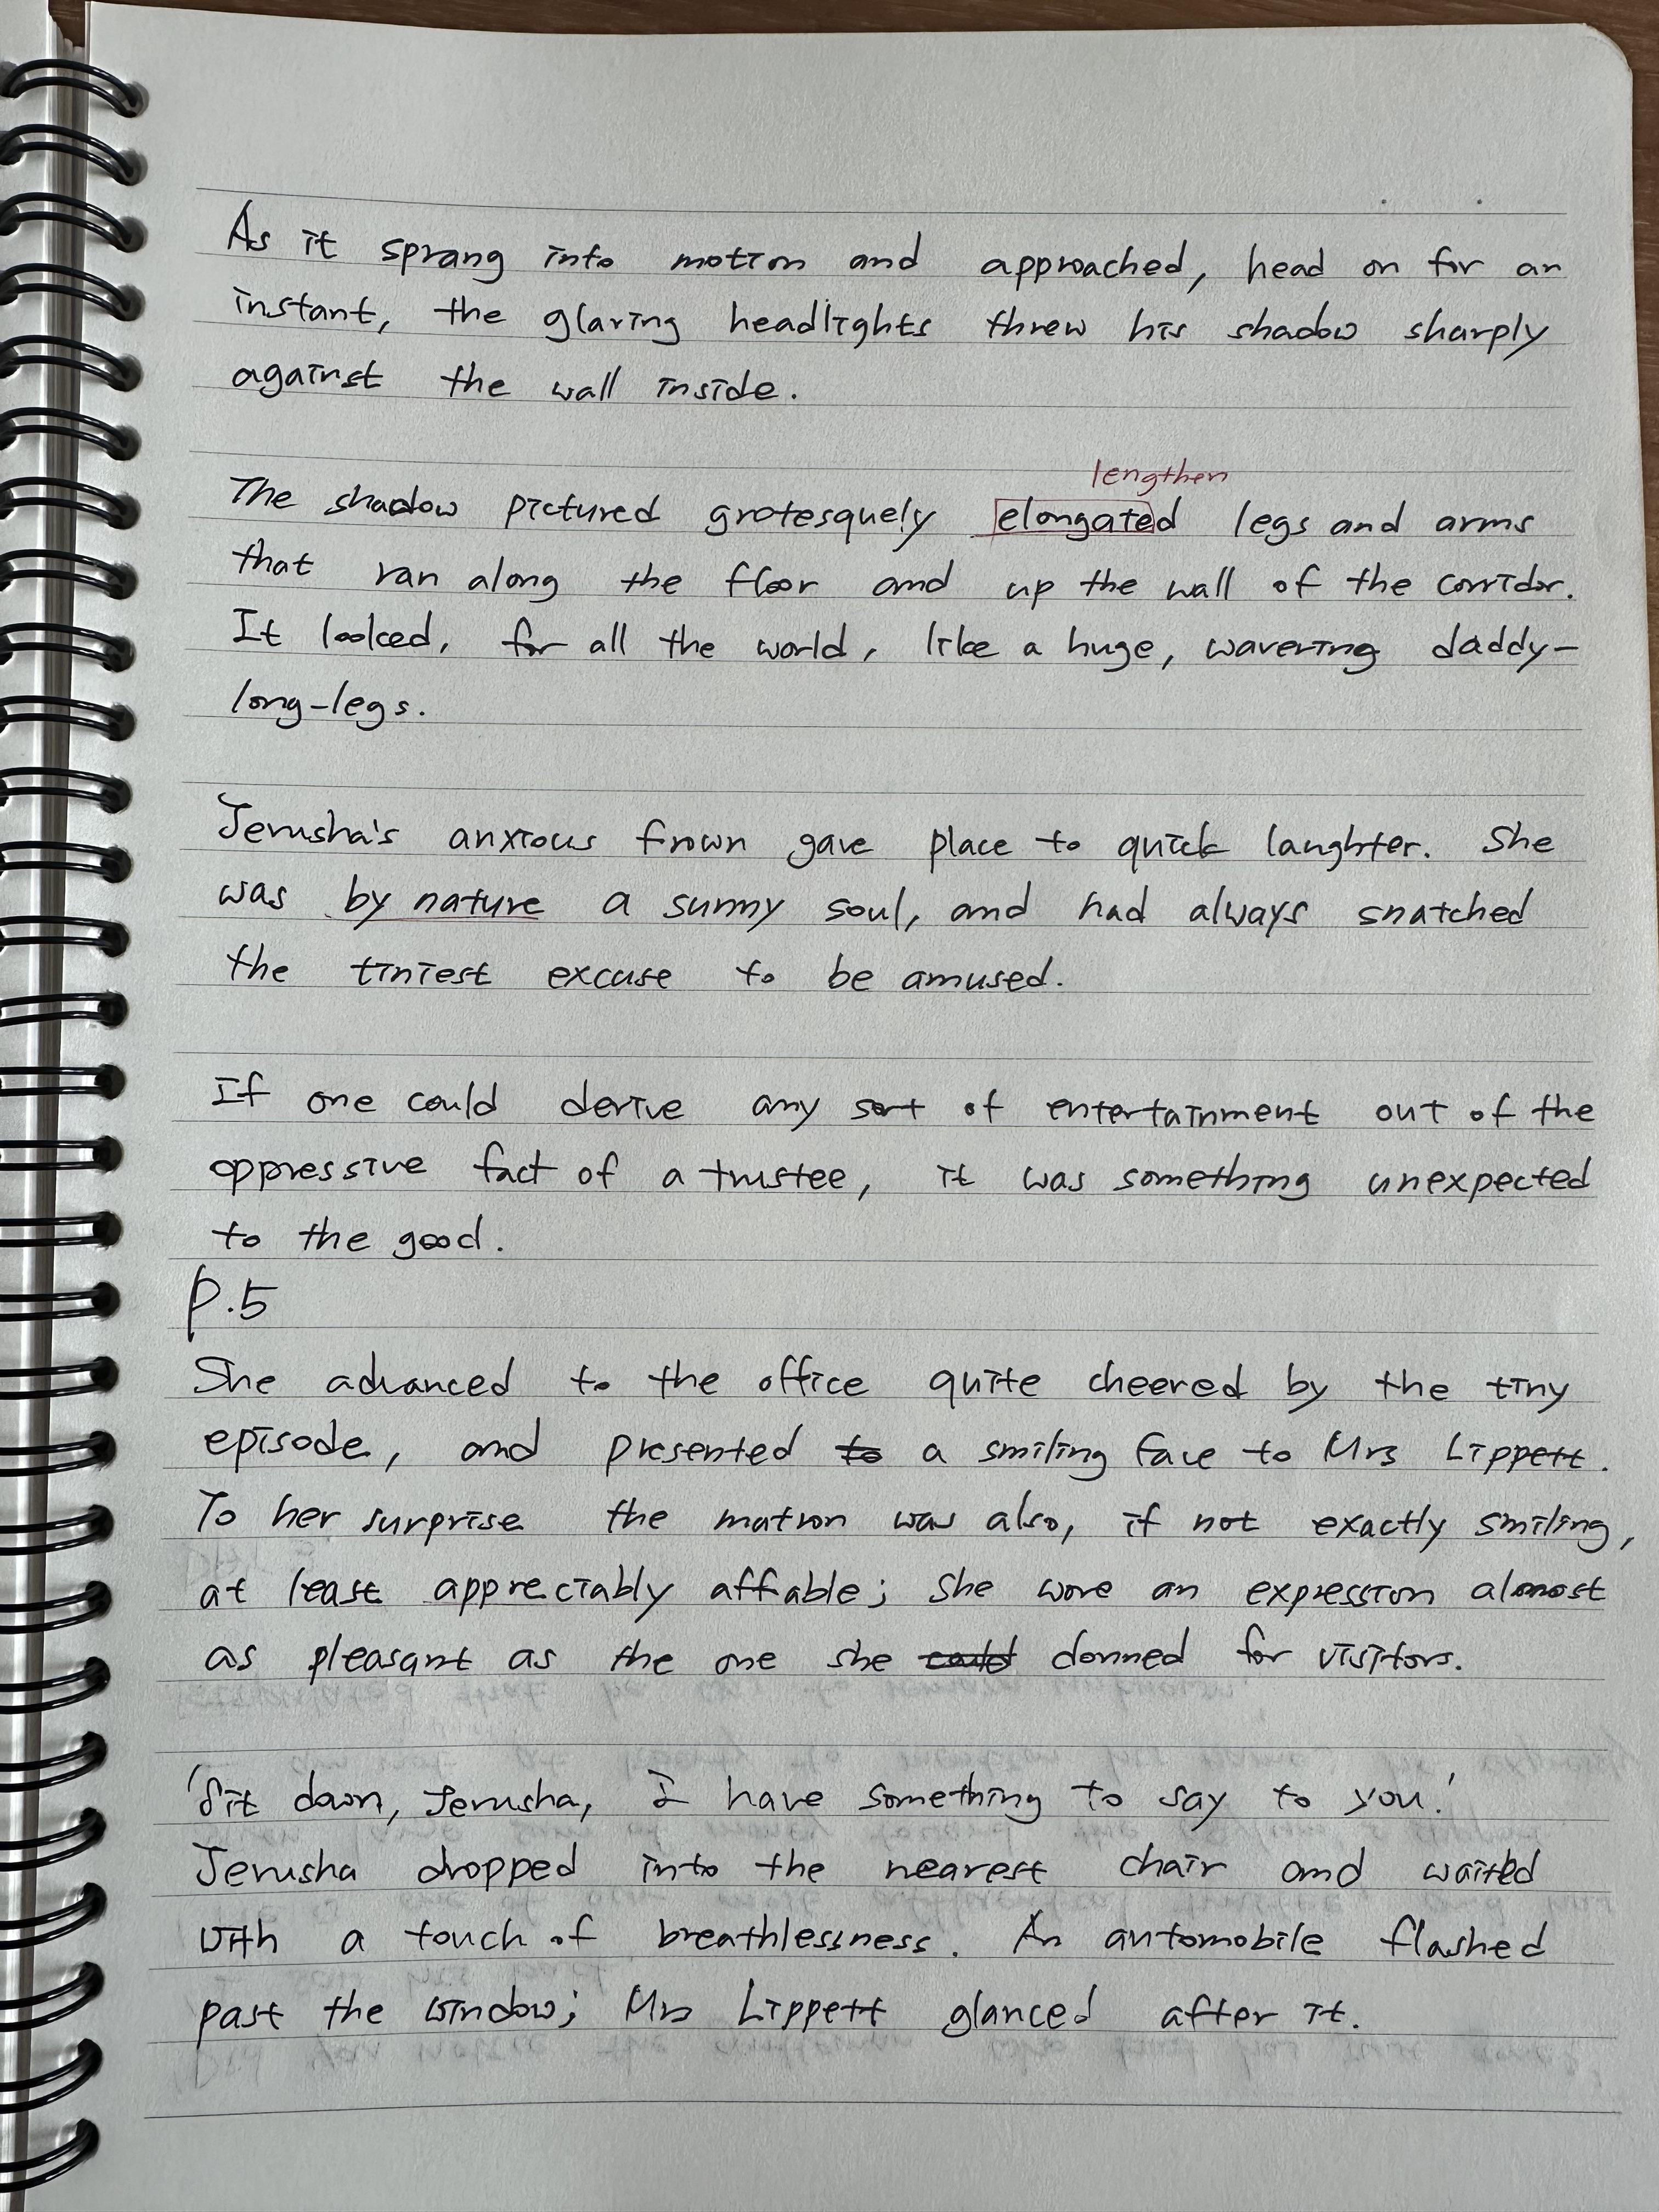 As it sprang into motion and approached, head on for an
instant, the glaring headlights threw his shadow sharply
against the wall inside.
lengthen
The shadow pictured grotesquely elongated legs and arms
that ran along the floor and up the wall of the corridor.
It looked, for all the world, like a huge, wavering daddy-
long-legs.
Jerusha's anxious frown gave place to quick laughter. She
was by nature a sunny soul, and had always snatched
the tiniest excuse to be amused.
If one could derive any sort of entertainment out of the
oppressive fact of a trustee, it was something unexpected
to the good.
P.5
She advanced to the office quite cheered by the tiny
episode, and presented to a smiling face to Mrs Lippett.
To her surprise the matron was also, if not exactly smiling,
at least appreciably affable; she wore an expression almost
as pleasant as the one she could donned for visitors.
'Sit down, Jerusha, I have something to say to you.'
Jerusha dropped into the nearest chair and waited
with a touch of breathlessness. An automobile flashed
past the window; Mrs Lippett glanced after it.